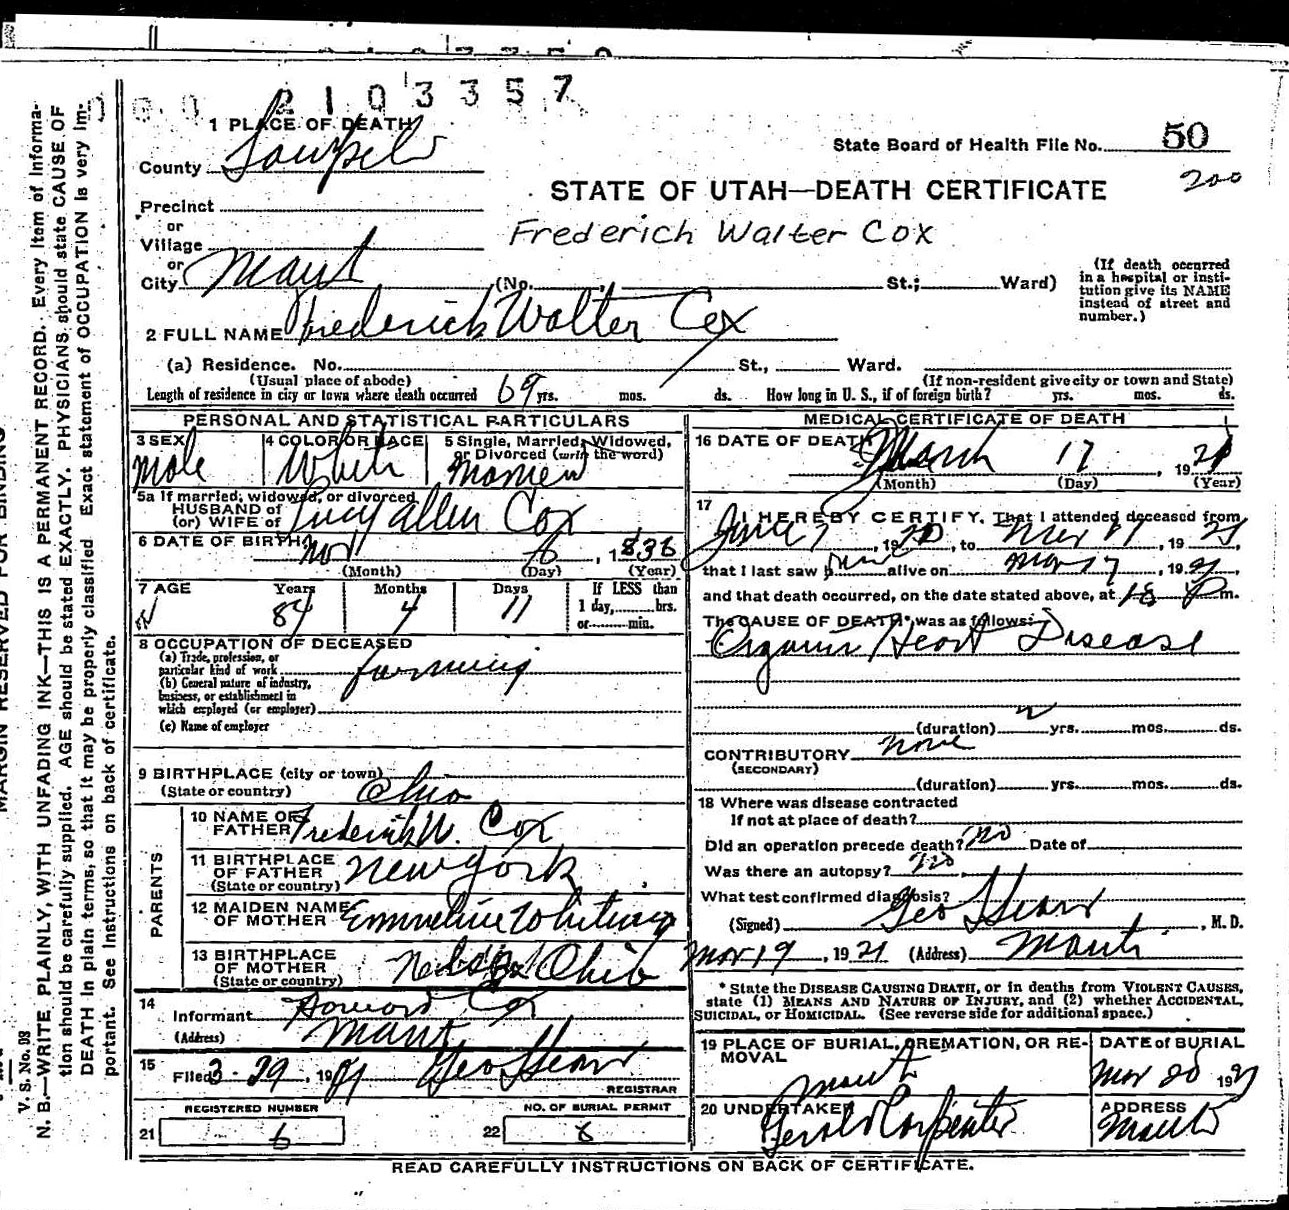 2103357
1 PLACE OF DEATH
County Sanpete
State Board of Health File No. 50
200
STATE OF UTAH—DEATH CERTIFICATE
Precinct
or
Village
Frederich Walter Cox
or
City Manti (No. , St.; Ward)
(If death occurred in a hospital or institution give its NAME instead of street and number.)
2 FULL NAME Frederick Walter Cox
(a) Residence. No. St., Ward.
(Usual place of abode) (If non-resident give city or town and State)
Length of residence in city or town where death occurred 69 yrs. mos. ds. How long in U. S., if of foreign birth? yrs. mos. ds.
PERSONAL AND STATISTICAL PARTICULARS
3 SEX Male
4 COLOR OR RACE White
5 Single, Married, Widowed, or Divorced (write the word) Married
5a If married, widowed, or divorced
HUSBAND of
(or) WIFE of Lucy Allen Cox
6 DATE OF BIRTH Nov 6, 1836
(Month) (Day) (Year)
7 AGE Years 84 Months 4 Days 11
If LESS than
1 day, hrs.
or min.
8 OCCUPATION OF DECEASED
(a) Trade, profession, or
particular kind of work farming
(b) General nature of industry,
business, or establishment in
which employed (or employer)
(c) Name of employer
9 BIRTHPLACE (city or town)
(State or country) Ohio
PARENTS
10 NAME OF
FATHER Frederick W. Cox
11 BIRTHPLACE
OF FATHER New York
(State or country)
12 MAIDEN NAME
OF MOTHER Emmeline Whitney
13 BIRTHPLACE
OF MOTHER Nelson Ohio
(State or country)
14
Informant Howard Cox
(Address) Manti
15
Filed 3-29, 1921 Geo L Sears
REGISTRAR
REGISTERED NUMBER
21 6
NO. OF BURIAL PERMIT
22 8
MEDICAL CERTIFICATE OF DEATH
16 DATE OF DEATH
March 17, 1921
(Month) (Day) (Year)
17
I HEREBY CERTIFY, That I attended deceased from
June 7, 1920, to Mar 17, 1921,
that I last saw him alive on Mar 17, 1921,
and that death occurred, on the date stated above, at P m.
The CAUSE OF DEATH* was as follows:
Organic Heart Disease
(duration) yrs. mos. ds.
CONTRIBUTORY none
(SECONDARY)
(duration) yrs. mos. ds.
18 Where was disease contracted
If not at place of death?
Did an operation precede death? no Date of
Was there an autopsy? no
What test confirmed diagnosis?
(Signed) Geo L Sears, M. D.
Mar 19, 1921 (Address) Manti
* State the DISEASE CAUSING DEATH, or in deaths from VIOLENT CAUSES,
state (1) MEANS AND NATURE OF INJURY, and (2) whether ACCIDENTAL,
SUICIDAL, or HOMICIDAL. (See reverse side for additional space.)
19 PLACE OF BURIAL, CREMATION, OR RE-
MOVAL
Manti
DATE of BURIAL
Mar 20 1921
20 UNDERTAKER
Gerold Carpenter
ADDRESS
Manti
READ CAREFULLY INSTRUCTIONS ON BACK OF CERTIFICATE.
MARGIN RESERVED FOR BINDING
V. S. No. 98
N. B.—WRITE PLAINLY, WITH UNFADING INK—THIS IS A PERMANENT RECORD. Every item of Informa-
tion should be carefully supplied. AGE should be stated EXACTLY. PHYSICIANS should state CAUSE OF
DEATH in plain terms, so that it may be properly classified. Exact statement of OCCUPATION is very im-
portant. See Instructions on back of certificate.